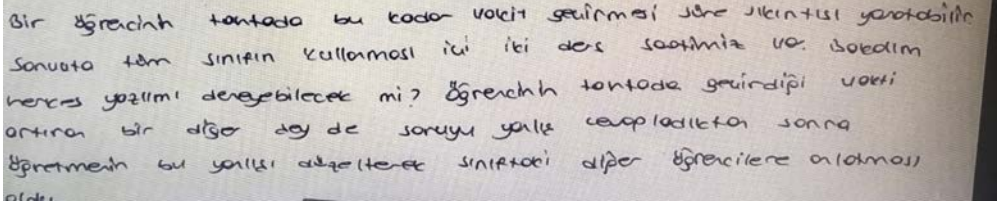 Bir öğrencinin tahtada bu kadar vakit geçirmesi süre sıkıntısı yaratabilir
Sonuçta tüm sınıfın kullanması için iki ders saatimiz var. Bakalım
herkes yazılımı deneyebilecek mi? Öğrencinin tahtada geçirdiği vakti
artıran bir diğer şey de soruyu yanlış cevapladıktan sonra
öğretmenin bu yanlışı düzelterek sınıftaki diğer öğrencilere anlatması
oldu.